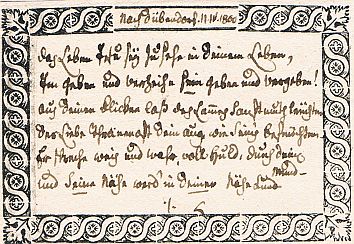 Nach Dübendorf. 11. IV. 1800
Das Leben Jesu sey zu sehn in deinem Leben,
Im geben und verzeihn sein geben und vergeben!
aus deinen Blicken laß des Lammes Sanftmuth leuchten
Der Liebe Thräne muß dein aug wie Seins befeuchten.
Er strahle weis und wahr, voll Huld, durch dein
Mund
und Seine Nähe werd in deiner Nähe kund